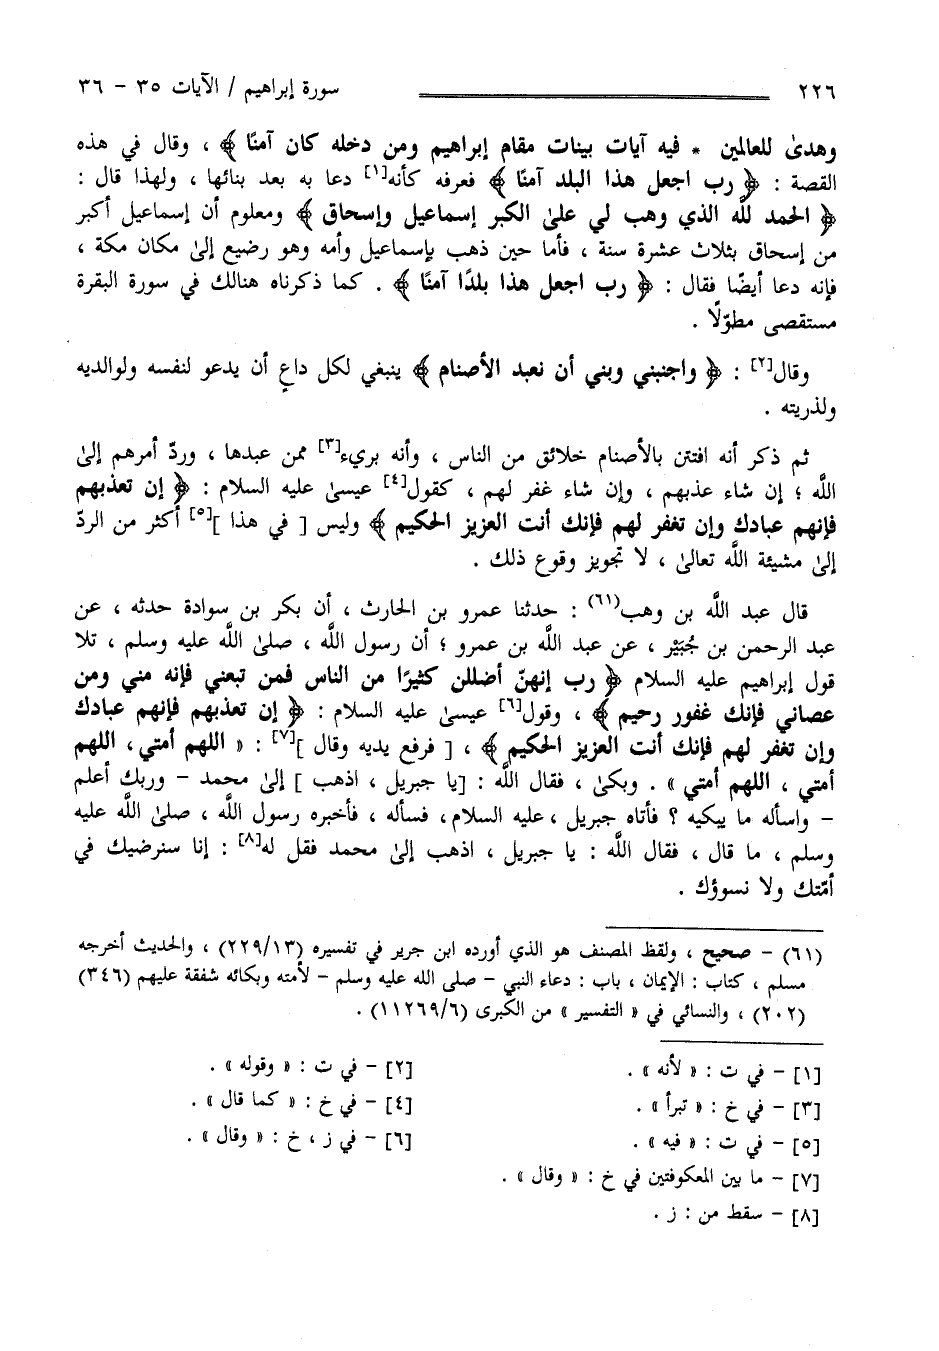 ٢٢٦ سورة إبراهيم / الآيات ٣٥ - ٣٦
وهدىٰ للعالمين * فيه آيات بينات مقام إبراهيم ومن دخله كان آمنًا ﴾ ، وقال في هذه
القصة : ﴿ رب اجعل هذا البلد آمنًا ﴾ فعرفه كأنه[١] دعا به بعد بنائها ، ولهذا قال :
﴿ الحمد للَّه الذي وهب لي علىٰ الكبر إسماعيل وإسحاق ﴾ ومعلوم أن إسماعيل أكبر
من إسحاق بثلاث عشرة سنة ، فأما حين ذهب بإسماعيل وأمه وهو رضيع إلىٰ مكان مكة ،
فإنه دعا أيضًا فقال : ﴿ رب اجعل هذا بلدًا آمنًا ﴾ . كما ذكرناه هنالك في سورة البقرة
مستقصى مطوّلًا .
وقال[٢] : ﴿ واجنبني وبني أن نعبد الأصنام ﴾ ينبغي لكل داعٍ أن يدعو لنفسه ولوالديه
ولذريته .
ثم ذكر أنه افتتن بالأصنام خلائق من الناس ، وأنه بريء[٣] ممن عبدها ، وردّ أمرهم إلىٰ
اللَّه ؛ إن شاء عذبهم ، وإن شاء غفر لهم ، كقول[٤] عيسىٰ عليه السلام : ﴿ إن تعذبهم
فإنهم عبادك وإن تغفر لهم فإنك أنت العزيز الحكيم ﴾ وليس [ في هذا ][٥] أكثر من الردّ
إلىٰ مشيئة اللَّه تعالىٰ ، لا تجويز وقوع ذلك .
قال عبد اللَّه بن وهب(٦١) : حدثنا عمرو بن الحارث ، أن بكر بن سوادة حدثه ، عن
عبد الرحمن بن جُبَيْر ، عن عبد اللَّه بن عمرو ؛ أن رسول اللَّه ، صلىٰ اللَّه عليه وسلم ، تلا
قول إبراهيم عليه السلام ﴿ رب إنهنّ أضللن كثيرًا من الناس فمن تبعني فإنه مني ومن
عصاني فإنك غفور رحيم ﴾ ، وقول[٦] عيسىٰ عليه السلام : ﴿ إن تعذبهم فإنهم عبادك
وإن تغفر لهم فإنك أنت العزيز الحكيم ﴾ ، [ فرفع يديه وقال ][٧] : « اللهم أمتي، اللهم
أمتي ، اللهم أمتي » . وبكىٰ ، فقال اللَّه : [يا جبريل ، اذهب ] إلىٰ محمد - وربك أعلم
- واسأله ما يبكيه ؟ فأتاه جبريل ، عليه السلام، فسأله ، فأخبره رسول اللَّه ، صلىٰ اللَّه عليه
وسلم ، ما قال ، فقال اللَّه : يا جبريل ، اذهب إلىٰ محمد فقل له[٨] : إنا سنرضيك في
أمّتك ولا نسوؤك .
(٦١) - صحيح ، ولفظ المصنف هو الذي أورده ابن جرير في تفسيره (٢٢٩/١٣) ، والحديث أخرجه
مسلم ، كتاب : الإيمان ، باب : دعاء النبي - صلى الله عليه وسلم - لأمته وبكائه شفقة عليهم (٣٤٦)
(٢٠٢) ، والنسائي في « التفسير » من الكبرى (١١٢٦٩/٦) .
[١] - في ت : « لأنه » . [٢] - في ت : « وقوله » .
[٣] - في خ : « تبرأ » . [٤] - في خ : « كما قال » .
[٥] - في ت : « فيه » . [٦] - في ز ، خ : « وقال » .
[٧] - ما بين المعكوفتين في خ : « وقال » .
[٨] - سقط من : ز .